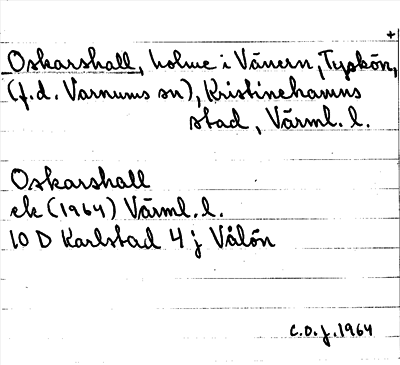 +
Oskarshall, holme i Vänern, Tyskön,
(f.d. Varnums sn), Kristinehamns
stad, Värml. l.
Oskarshall
ek (1964) Värml. l.
10 D Karlstad 4 j Vålön
C.O.J. 1964